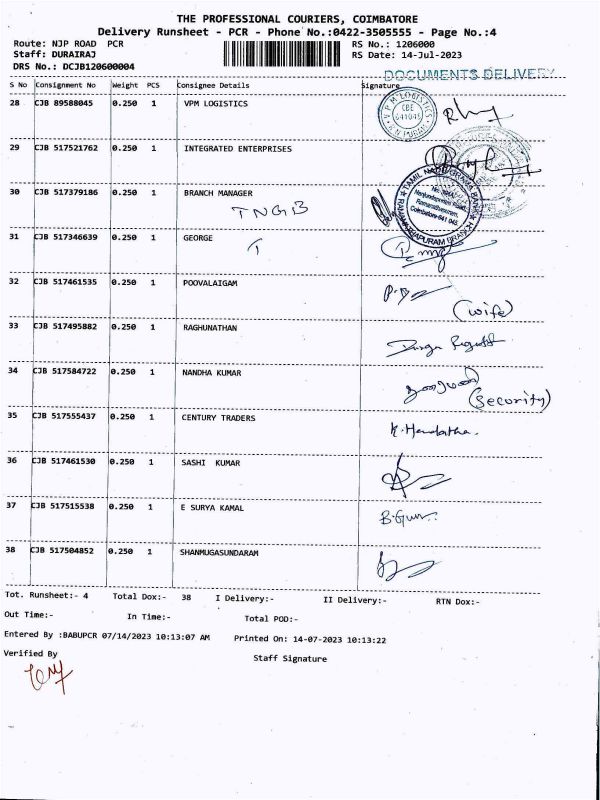 THE PROFESSIONAL COURIERS, COIMBATORE
Delivery Runsheet - PCR - Phone No.:0422-3505555 - Page No.:4
Route: NJP ROAD PCR RS No.: 1206000
Staff: DURAIRAJ RS Date: 14-Jul-2023
DRS No.: DCJB120600004
DOCUMENTS DELIVERY
S No Consignment No Weight PCS Consignee Details Signature
28 CJB 89588045 0.250 1 VPM LOGISTICS
VPM LOGISTICS
CBE
641045
29 CJB 517521762 0.250 1 INTEGRATED ENTERPRISES
30 CJB 517379186 0.250 1 BRANCH MANAGER
TNGB
TAMIL NADU GRAMA BANK
RAMANATHAPURAM BRANCH
Ramanathapuram,
Coimbatore-641 045
31 CJB 517346639 0.250 1 GEORGE
T
32 CJB 517461535 0.250 1 POOVALAIGAM
(wife)
33 CJB 517495882 0.250 1 RAGHUNATHAN
34 CJB 517584722 0.250 1 NANDHA KUMAR
(Security)
35 CJB 517555437 0.250 1 CENTURY TRADERS
36 CJB 517461530 0.250 1 SASHI KUMAR
37 CJB 517515538 0.250 1 E SURYA KAMAL
38 CJB 517504852 0.250 1 SHANMUGASUNDARAM
Tot. Runsheet:- 4 Total Dox:- 38 I Delivery:- II Delivery:- RTN Dox:-
Out Time:- In Time:- Total POD:-
Entered By :BABUPCR 07/14/2023 10:13:07 AM Printed On: 14-07-2023 10:13:22
Verified By Staff Signature